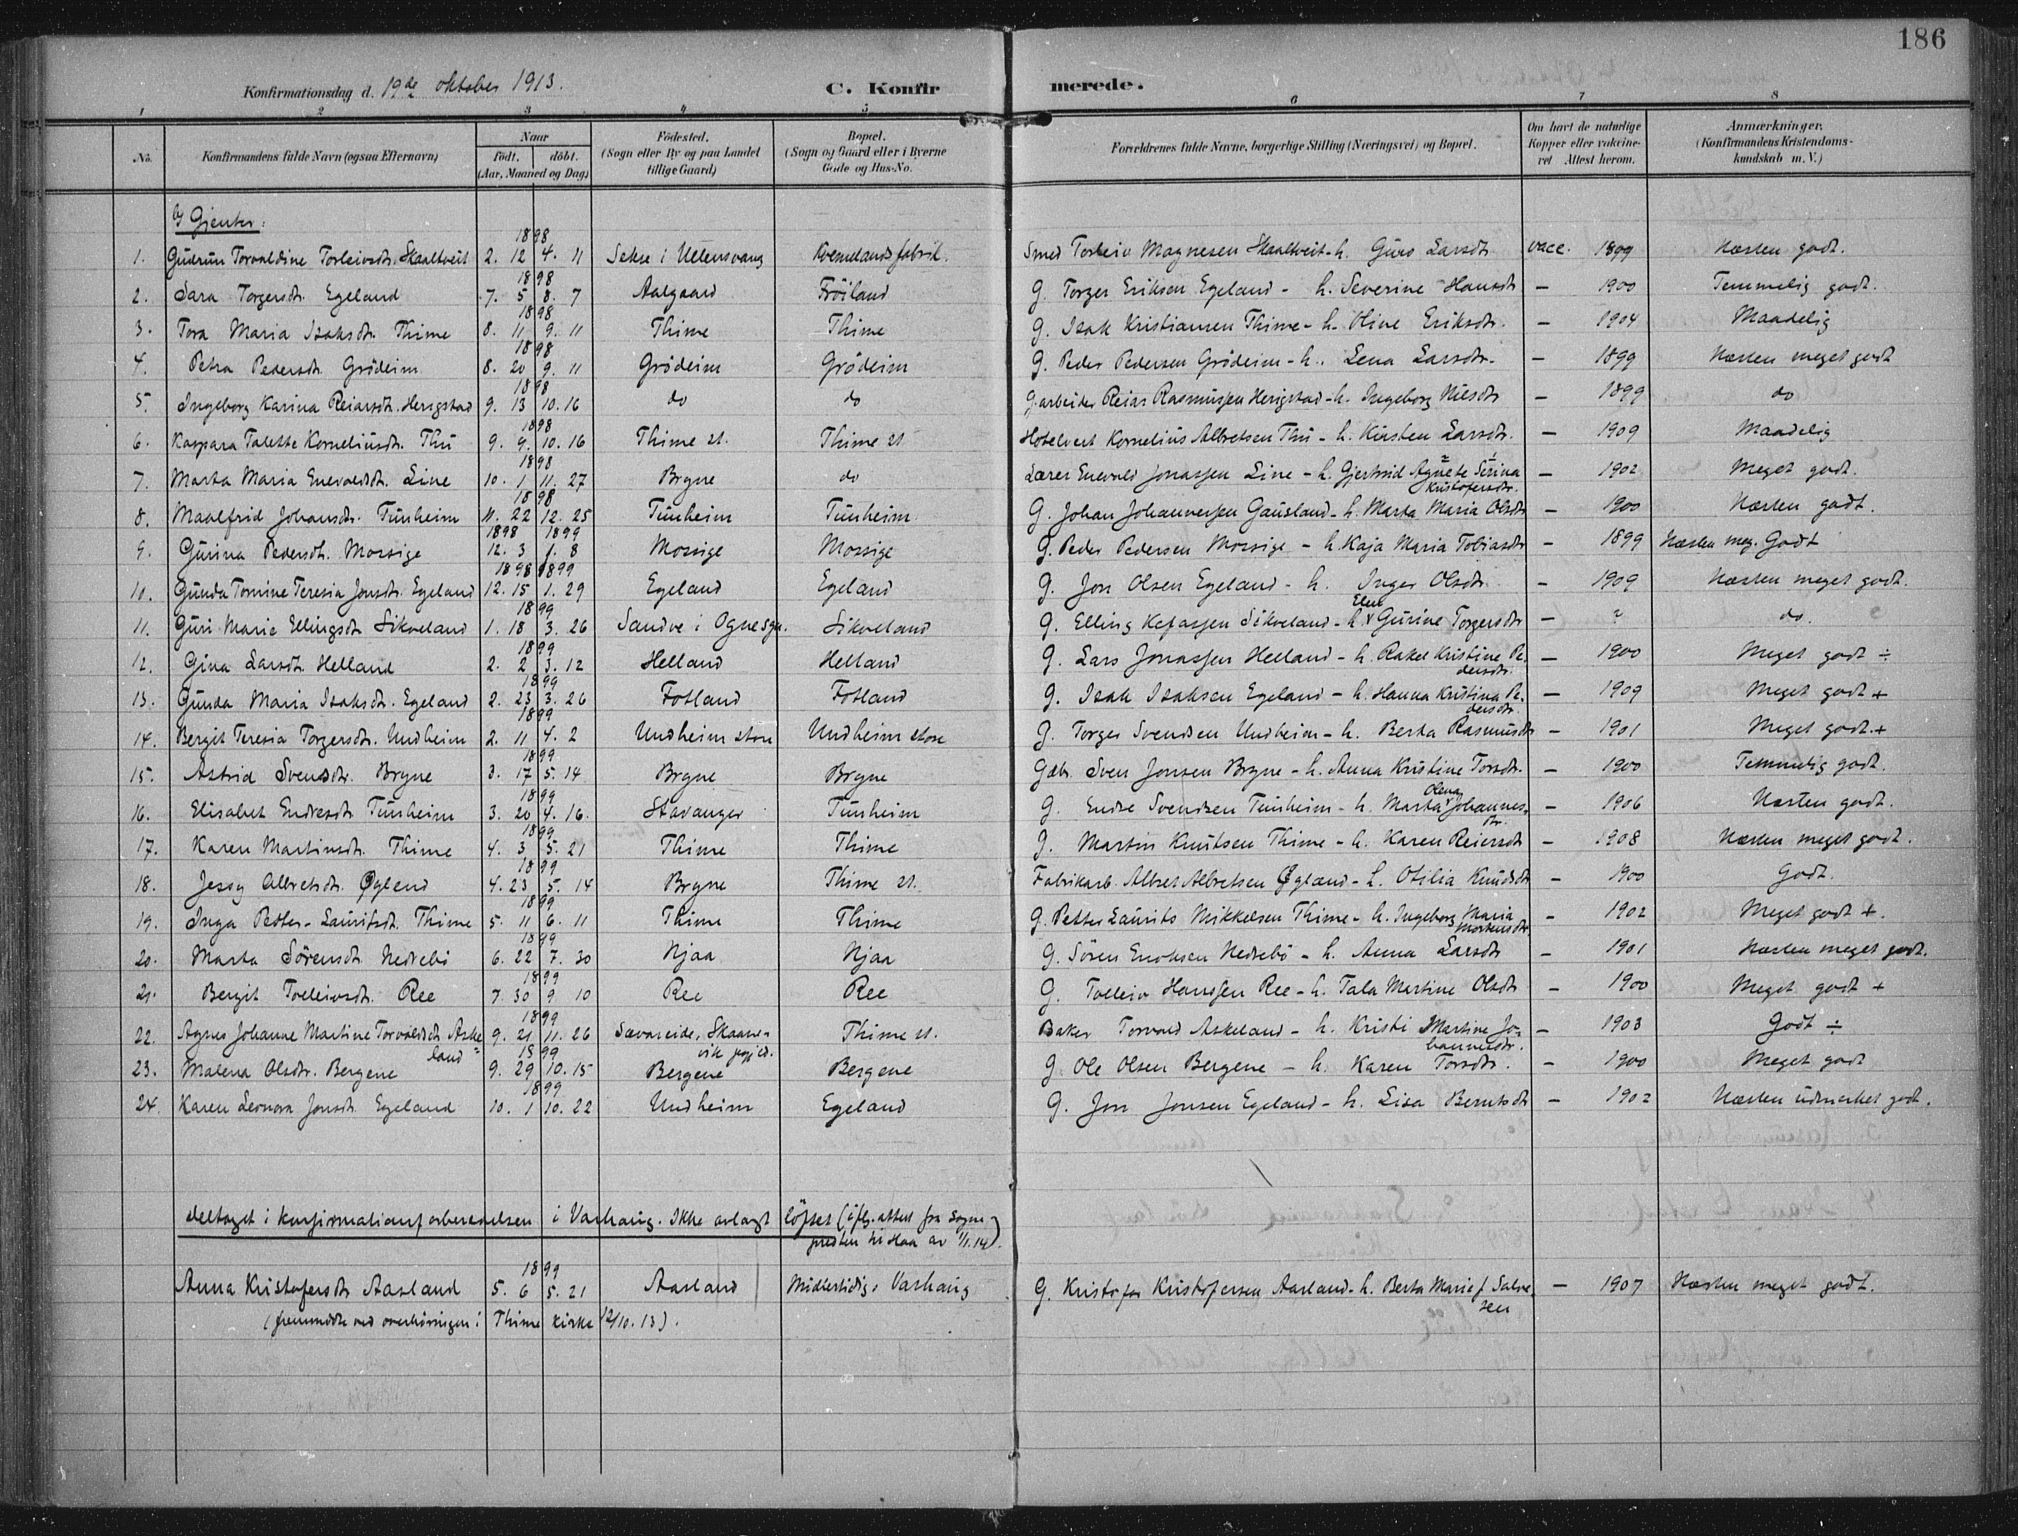 186
Konfirmationsdag d. 19de oktober 1913. C. Konfirmerede.
1 2 3 4 5 6 7 8
No. Konfirmandens fulde Navn (ogsaa Efternavn) Naar født. døbt. (Aar, Maaned og Dag) Fødested. (Sogn eller By og paa Landet tillige Gaard) Bopæl. (Sogn og Gaard eller i Byerne Gade og Hus-No. Forældrenes fulde Navne, borgerlige Stilling (Næringsvei) og Bopæl. Om havt de naturlige Kopper eller vakcineret Attest herom. Anmærkninger. (Konfirmandens Kristendomskundskab m. V.)
b) Gjenter:
1898
1. Gudrun Torvaldine Torleivsdtr. Skaaltveit 2. 12 4. 11 Sekse i Ullensvang Kvernelands fabrik. Smed Torleiv Magnesen Skaaltveit - h. Guro Larsdtr. vacc. 1899 Næsten godt.
1898
2. Sara Torgersdtr. Egeland 7. 5 8. 7 Aalgaard Fröiland G. Torger Eriksen Egeland - h. Severine Hansdtr - 1900 Temmelig godt.
1898
3. Tora Maria Isaksdtr. Thime 8. 11 9. 11 Thime Thime G. Isak Kristiansen Thime - h. Oline Eriksdtr. - 1904 Maadelig
1898
4. Petra Pedersdtr. Grödeim 8. 20 9. 11 Grödeim Grödeim G. Peder Pedersen Grödeim - h. Lena Larsdtr. - 1899 Næsten meget godt
1898
5. Ingeborg Karina Reiarsdtr. Herigstad 9. 13 10. 16 do do G.arbeider Reiar Rasmussen Herigstad - h. Ingeborg Nilsdtr - 1899 do
1898
6. Kaspara Talette Korneliusdtr. Thu 9. 9. 10. 16 Thime st. Thime st Hotelvert Kornelius Albretsen Thu - h. Kirsten Larsdtr. - 1909 Maadelig
1898
7. Marta Maria Enevaldsdtr. Line 10. 1 11. 27 Bryne do Lærer Enevald Jonassen Line - h. Gjertrud Agnete Serina Kristofersdtr. - 1902 Meget godt.
1898
8. Maalfrid Johansdtr. Tunheim 11. 22 12. 25 Tunheim Tunheim G. Johan Johannessen Gausland - h. Marta Maria Olsdtr - 1900 Næsten godt.
1898 1899
9. Gurina Pedersdtr. Mossige 12. 3 1. 8 Mossige Mossige G. Peder Pedersen Mossige - h. Kaja Maria Tobiasdtr - 1899 Næsten meg. Godt
1898 1899
10. Gunda Tomine Teresia Jonsdtr. Egeland 12. 15 1. 29 Egeland Egeland G. Jon Olsen Egeland - h. Inger Olsdtr. - 1909 Næsten meget godt.
1899
11. Guri Marie Ellingsdtr Sikveland 1. 18 3. 26 Sandve i Ogne sgn. Sikveland G. Elling Kefassen Sikveland - h. Elen Gurine Torgersdtr - ? do.
1899
12. Gina Larsdtr. Helland 2. 2 3. 12 Helland Helland G. Lars Jonassen Helland - h. Rakel Kristine Pedersdtr. - 1900 Meget godt ÷
1899
13. Gunda Maria Isaksdtr. Egeland 2. 23 3. 26 Fotland Fotland G. Isak Isaksen Egeland - h. Hanna Kristina Pedersdtr. - 1909 Meget godt +
1899
14. Bergit Teresia Torgersdtr. Undheim 2. 11 4. 2 Undheim store Undheim store G. Torger Svendsen Undheim - h. Berta Rasmusdtr - 1901 Meget godt. +
1899
15. Astrid Svensdtr. Bryne 3. 17 5. 14. Bryne Bryne Gdbr. Sven Jonsen Bryne - h. Anna Kristine Torsdtr. - 1900 Temmelig godt.
1899
16. Elisabet Endresdtr. Tunheim 3. 20 4. 16. Stavanger Tunheim G. Endre Svendsen Tunheim - h. Marta Olena Johannesdtr. - 1906 Næsten godt.
1899
17. Karen Martinsdtr. Thime 4. 3 5. 21 Thime Thime G. Martin Knutsen Thime - h. Karen Reiersdtr - 1908 Næsten meget godt.
1899
18. Jessy Albretsdtr. Øglend 4. 23 5. 14 Bryne Thime st. Fabrikarb. Albret Albretsen Øglænd - h. Otilia Knudsdtr - 1900 Godt.
1899
19. Inga Petter-Lauritsdt. Thime 5. 11 6. 11 Thime Thime G. Petter Laurits Mikkelsen Thime - h. Ingeborg Maria Mortensdtr. - 1902 Meget godt +.
1899
20. Marta Sörensdt. Nedrebö 6. 22 7. 30 Njaa Njaa G. Sören Enoksen Nedrebö - h. Anna Larsdtr - 1901 Næsten meget godt.
1899
21. Bergit Tolleivsdtr. Ree 7. 30 9. 10 Ree Ree G. Tolleiv Hanssen Ree - h. Tala Martine Olsdtr - 1900 Meget godt +
1899
22. Agnes Johanne Martine Torvaldsdtr. Askeland 9. 21 11. 26 Sævareide, Skaanevik pgjld. Thime st. Baker Torvald Askeland - h. Kristi Martine Johannesdtr. - 1903 Godt ÷
1899
23. Malena Olsdtr. Bergene 9. 29 10. 15 Bergene Bergene G. Ole Olsen Bergene - h. Karen Torsdtr. - 1900 Meget godt
1899
24. Karen Leonora Jonsdt. Egeland 10. 1 10. 22 Undheim Egeland G. Jon Jonsen Egeland - h. Lisa Berntsdtr - 1902 Næsten udmerket godt.
deltaget i konfirmationsforberedelsen i Varhaug. Ikke avlagt löftet (iflg. attest fra sogne-
presten til Haa av 1/1. 14).
1899
Anna Kristofersdtr Aasland 5. 6 5. 21 Aasland Midlertidig: Varhaug G. Kristofer Kristofersen Aasland - h. Berta Marie f. Salvesen - 1907 Næsten meget godt.
(fremmötte ved overhöringen i Thime kirke 12/10. 13).